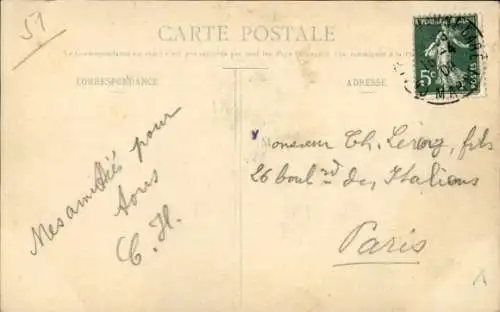 51
CARTE POSTALE
La Correspondance au recto n'est pas acceptée par tous les Pays Étrangers
CORRESPONDANCE
ADRESSE
5c
POSTES
Mes amitiés pour
tous
C. H.
Monsieur Ch. Leroy, fils
26 boulrd des Italiens
Paris
A